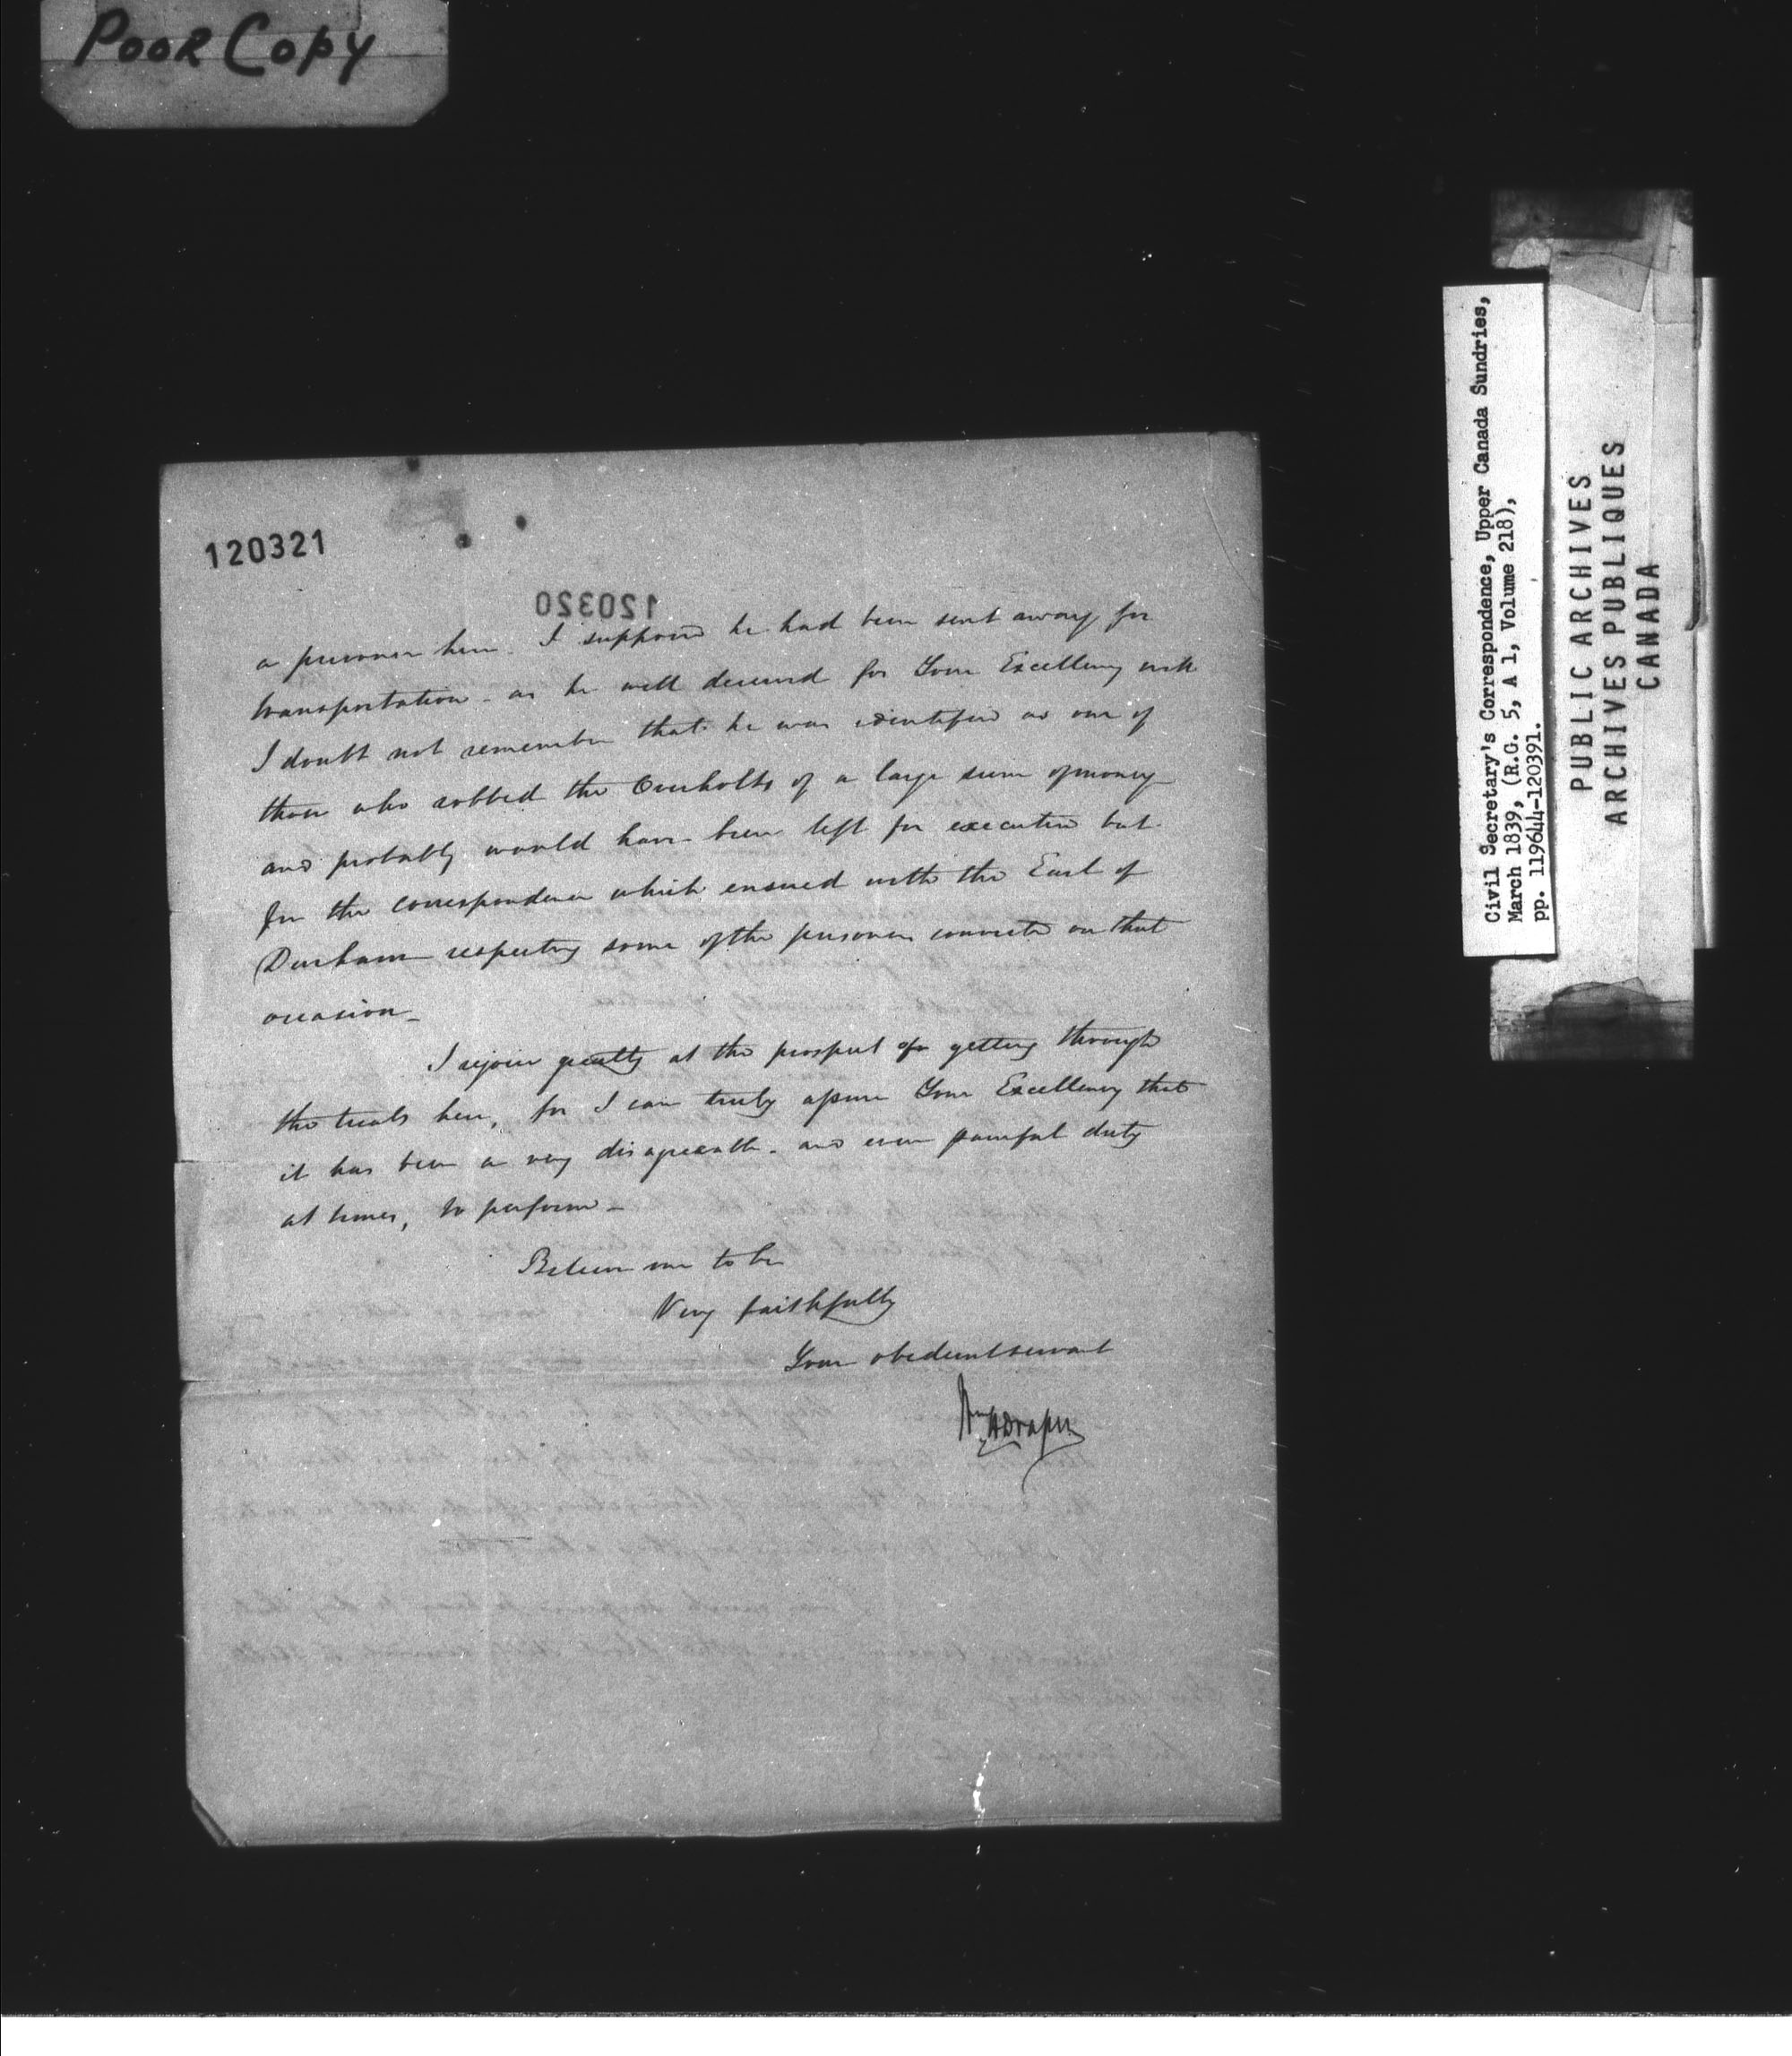 Poor Copy
120321
120320
a prisoner here. I supposed he had been sent away for
transportation - as he well deserved for Your Excellency will
I doubt not remember that he was identified as one of
those who robbed the Overholts of a large sum of money
and probably would have been left for execution but
for the correspondence which ensued with the Earl of
Durham respecting some of the prisoners convicted on that
occasion_
I rejoice greatly at the prospect of getting through
the trials here, for I can truly assure Your Excellency that
it has been a very disagreeable - and even painful duty
at times, to perform_
Believe me to be
Very faithfully
Your obedient servant
Wm H Draper
Civil Secretary's Correspondence, Upper Canada Sundries,
March 1839, (R.G. 5, A 1, Volume 218),
pp. 119644-120391.
PUBLIC ARCHIVES
ARCHIVES PUBLIQUES
CANADA